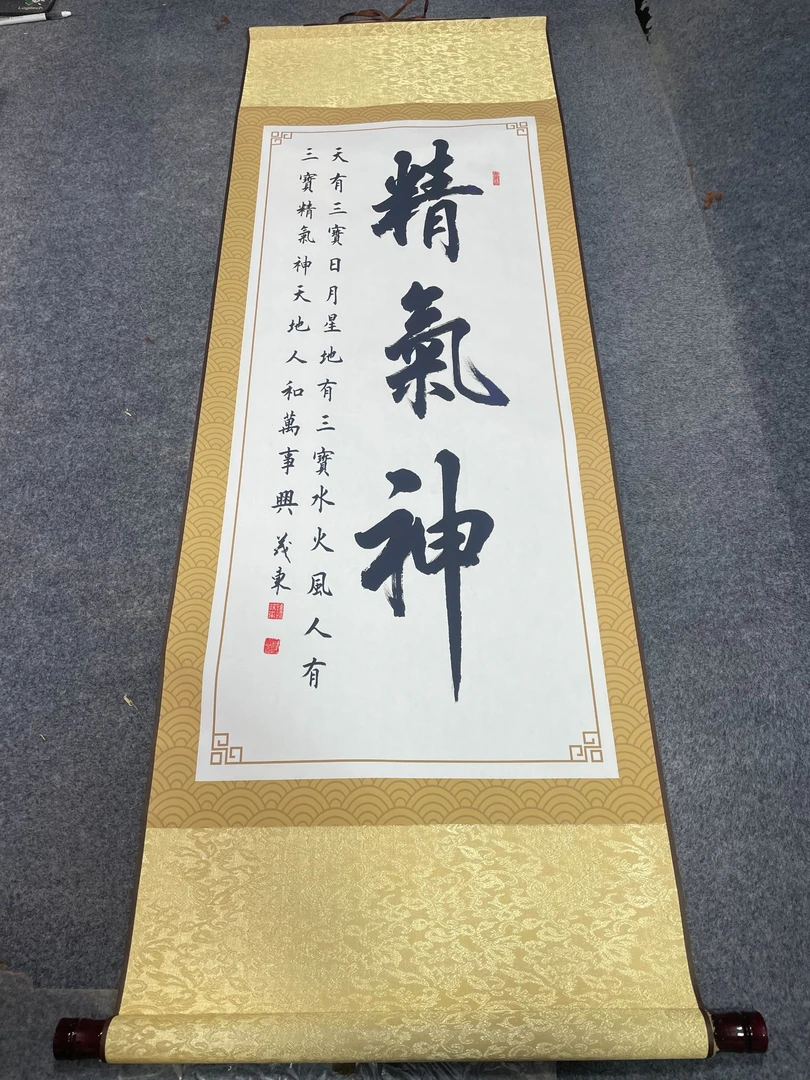 精氣神
天有三寳日月星地有三寳水火風人有
三寳精氣神天地人和萬事興
茂東